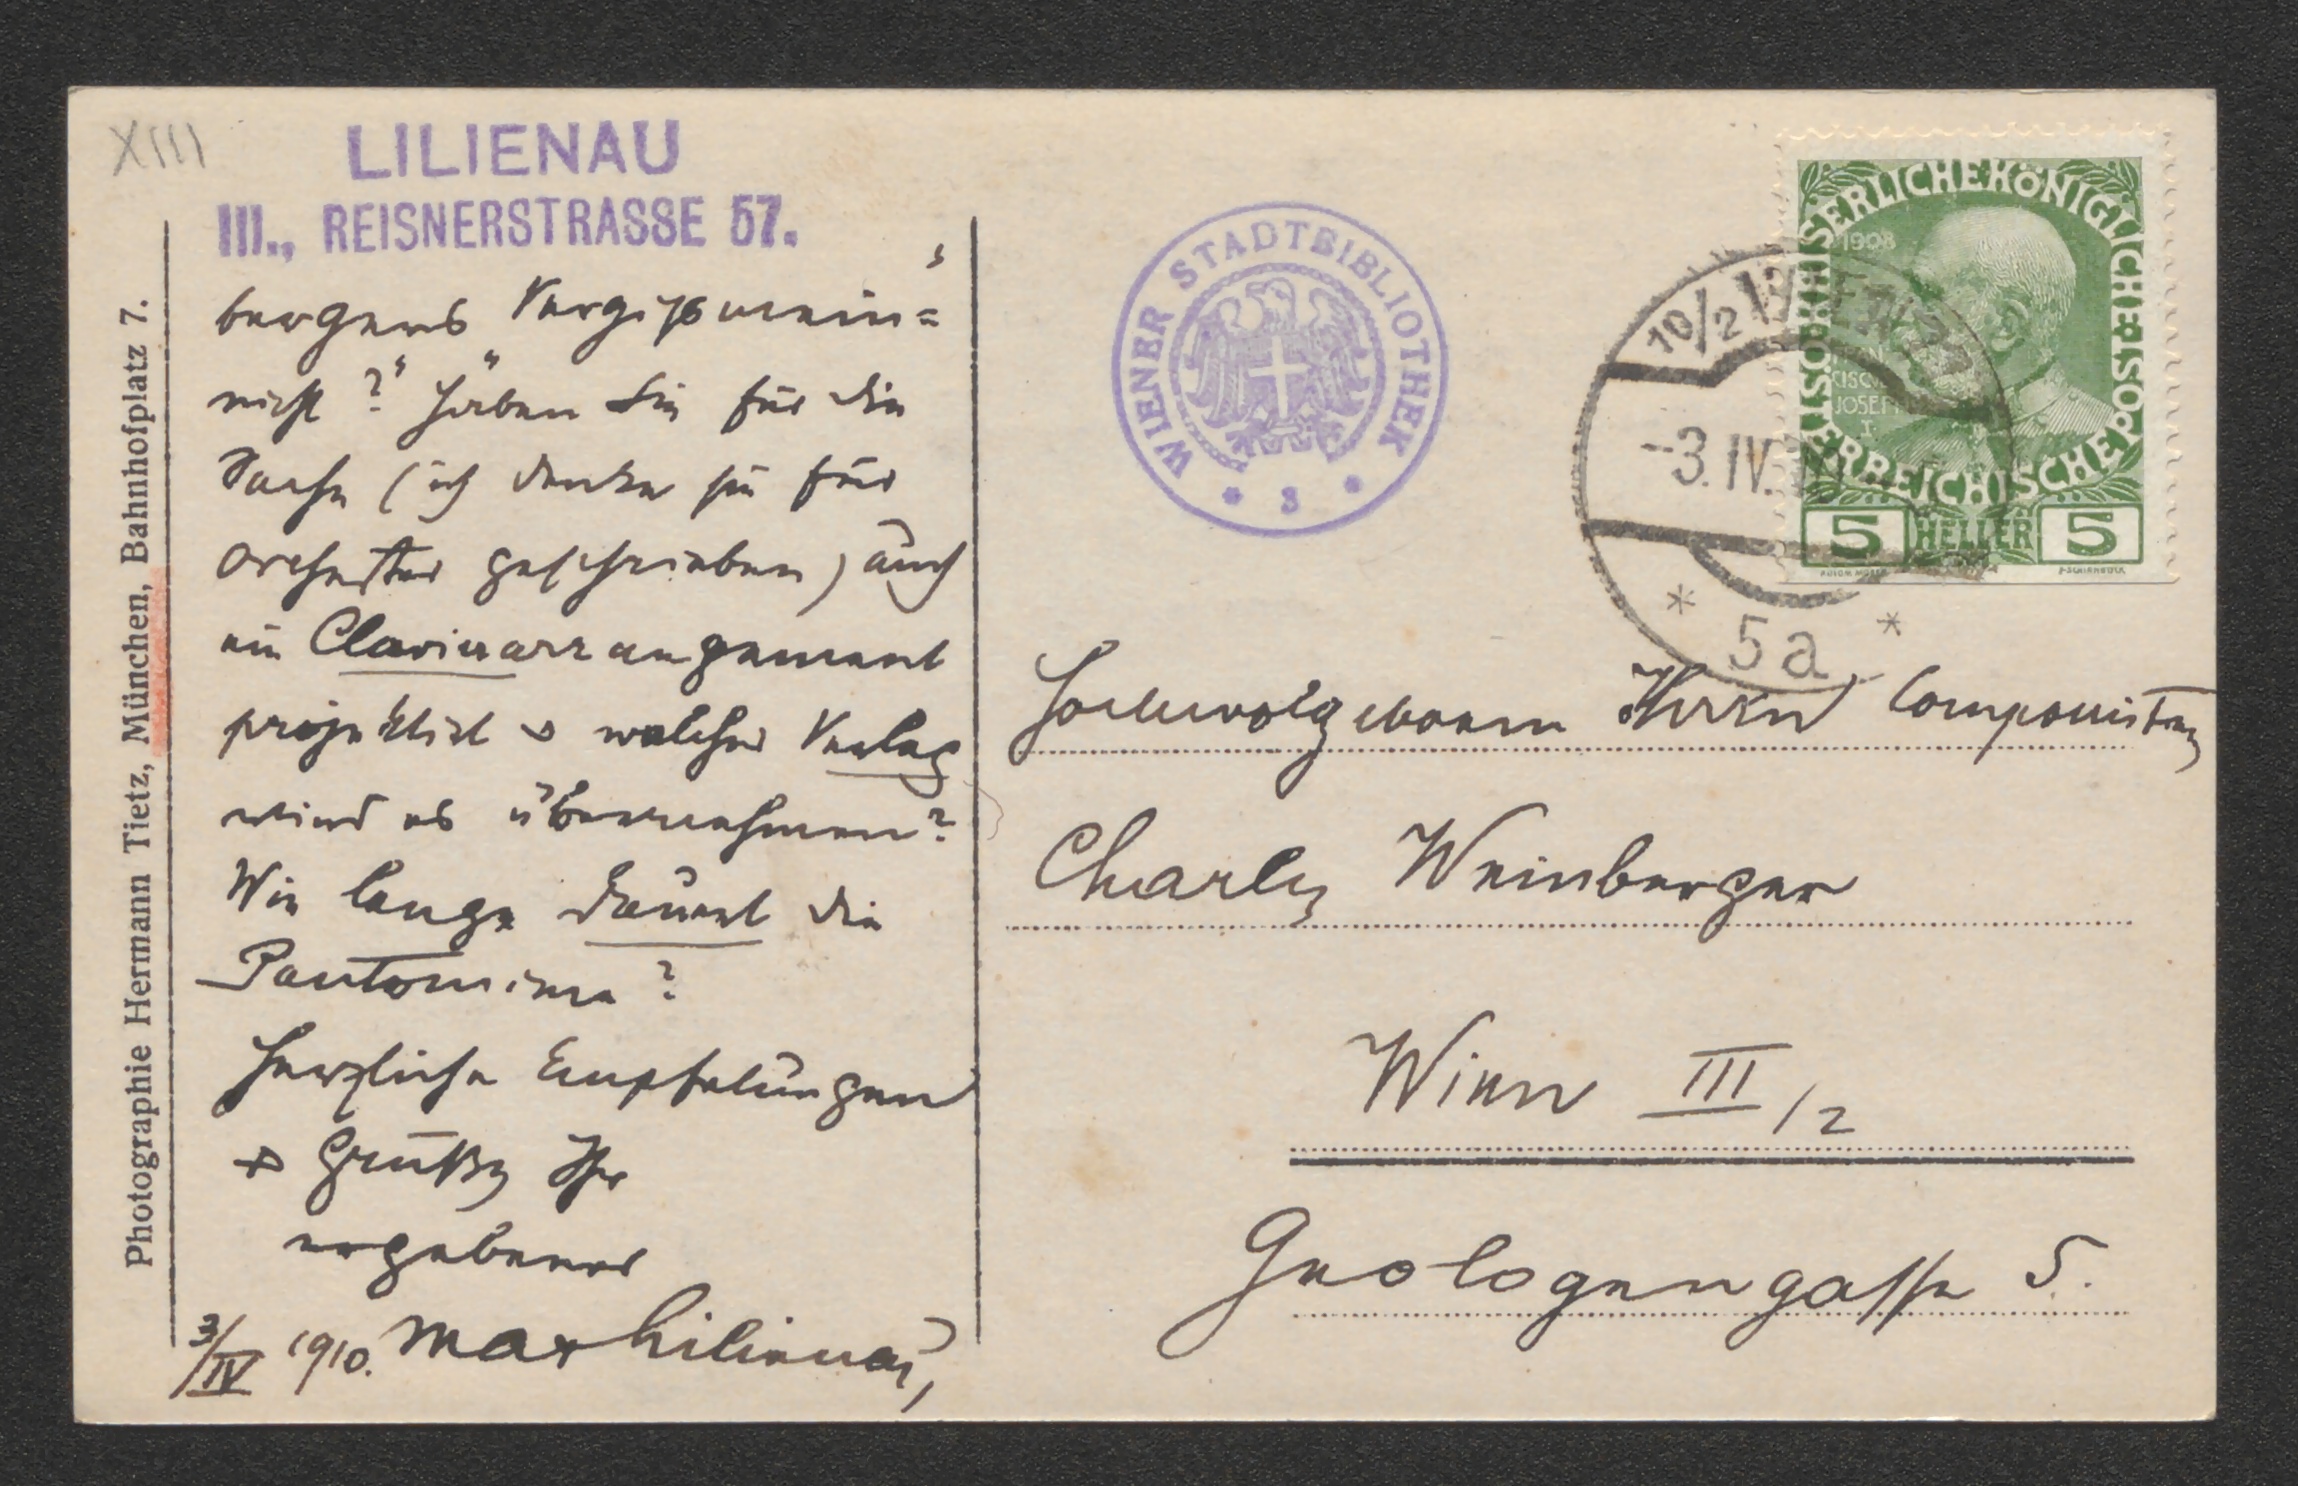 XIII
LILIENAU
III., REISNERSTRASSE 57.
bergers Vergißmein=
nicht?" Haben Sie für die
Sache (ich denke sie für
Orchester geschrieben) auch
ein Clavierarrangement
projektirt & welcher Verlag
wird es übernehmen?
Wie lange dauert die
Pantomime?
Herzliche Empfelungen
& Grüße Ihr
ergebener
3/IV 1910. Max Lilienau,
Photographie Hermann Tietz, München, Bahnhofplatz 7.
WIENER STADTBIBLIOTHEK
* 3 *
KAISERLICHE KÖNIGLICHE ÖSTERREICHISCHE POST
1908
JOSEF
I.
5 HELLER 5
10/2 WIEN
-3.IV.
* 5a *
Hochwolgeboren Herrn Componisten
Charly Weinberger
Wien III/2
Geologengasse 5.